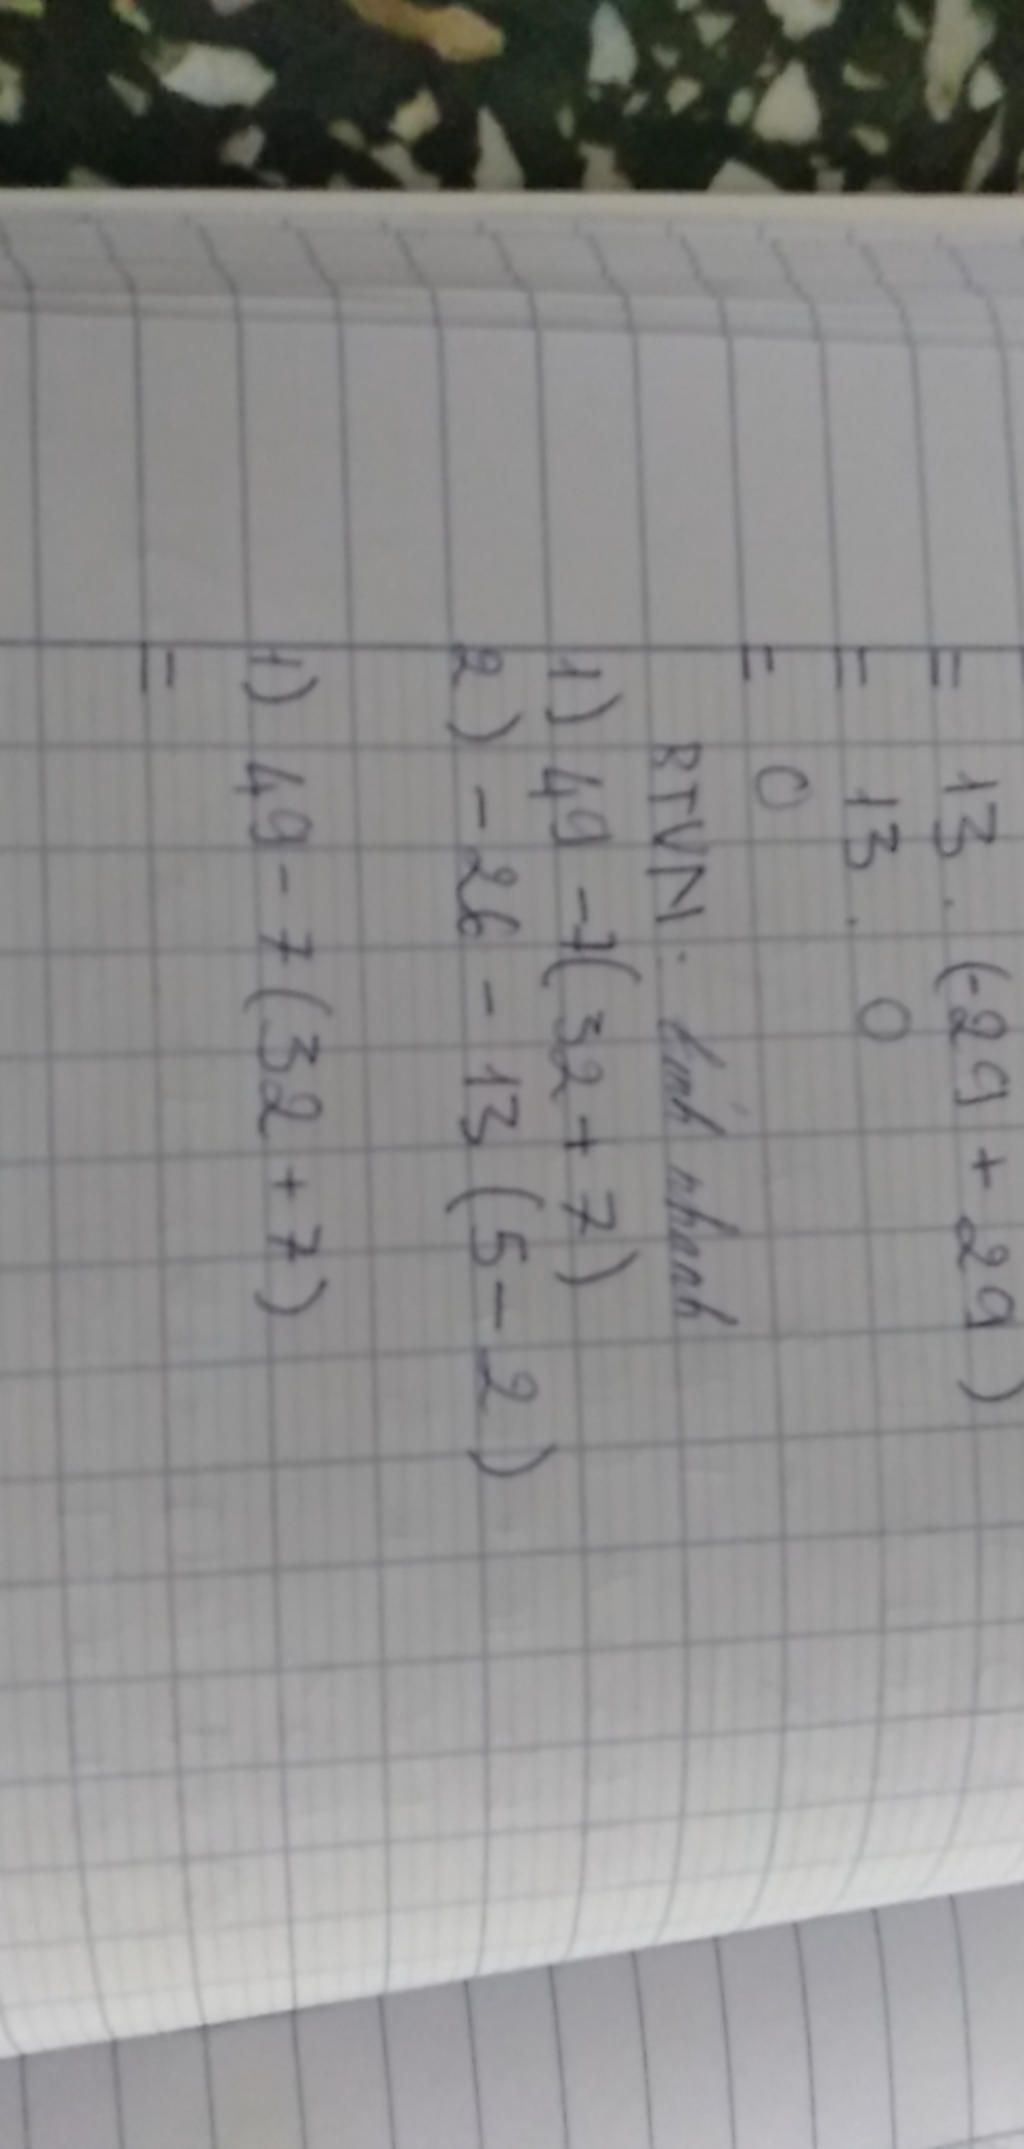 = 13 . (-29 + 29)
= 13 . 0
= 0
BTVN: tính nhanh
1) 49 - 7(32 + 7)
2) - 26 - 13 (5 - 2)
1) 49 - 7 (32 + 7)
=